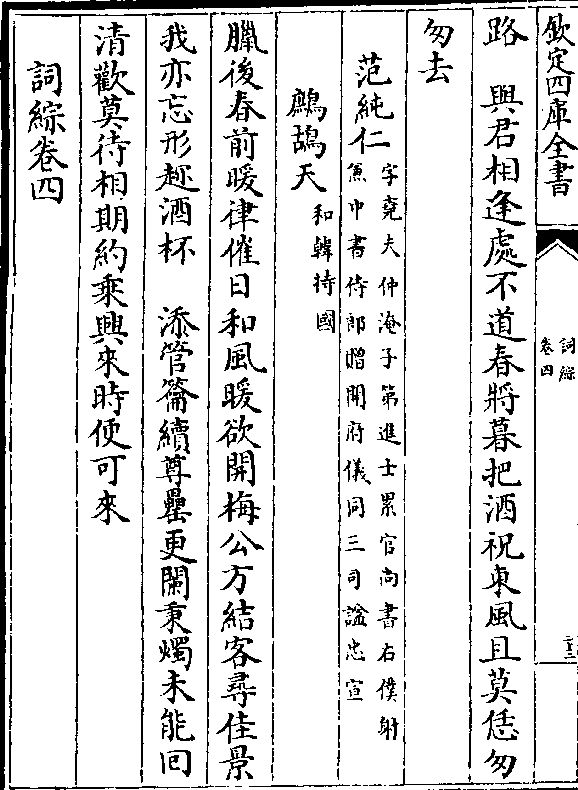 欽定四庫全書
詞綜
卷四
路　與君相逢處不道春將暮把酒祝東風且莫恁匆
匆去
范純仁 字堯夫仲淹子第進士累官尚書右僕射
兼中書侍郎贈開府儀同三司諡忠宣
鷓鴣天 和韓持國
臘後春前暖律催日和風暖欲開梅公方結客尋佳景
我亦忘形趂酒杯　添管籥續尊罍更闌秉燭未能回
清歡莫待相期約乗興來時便可來
詞綜卷四